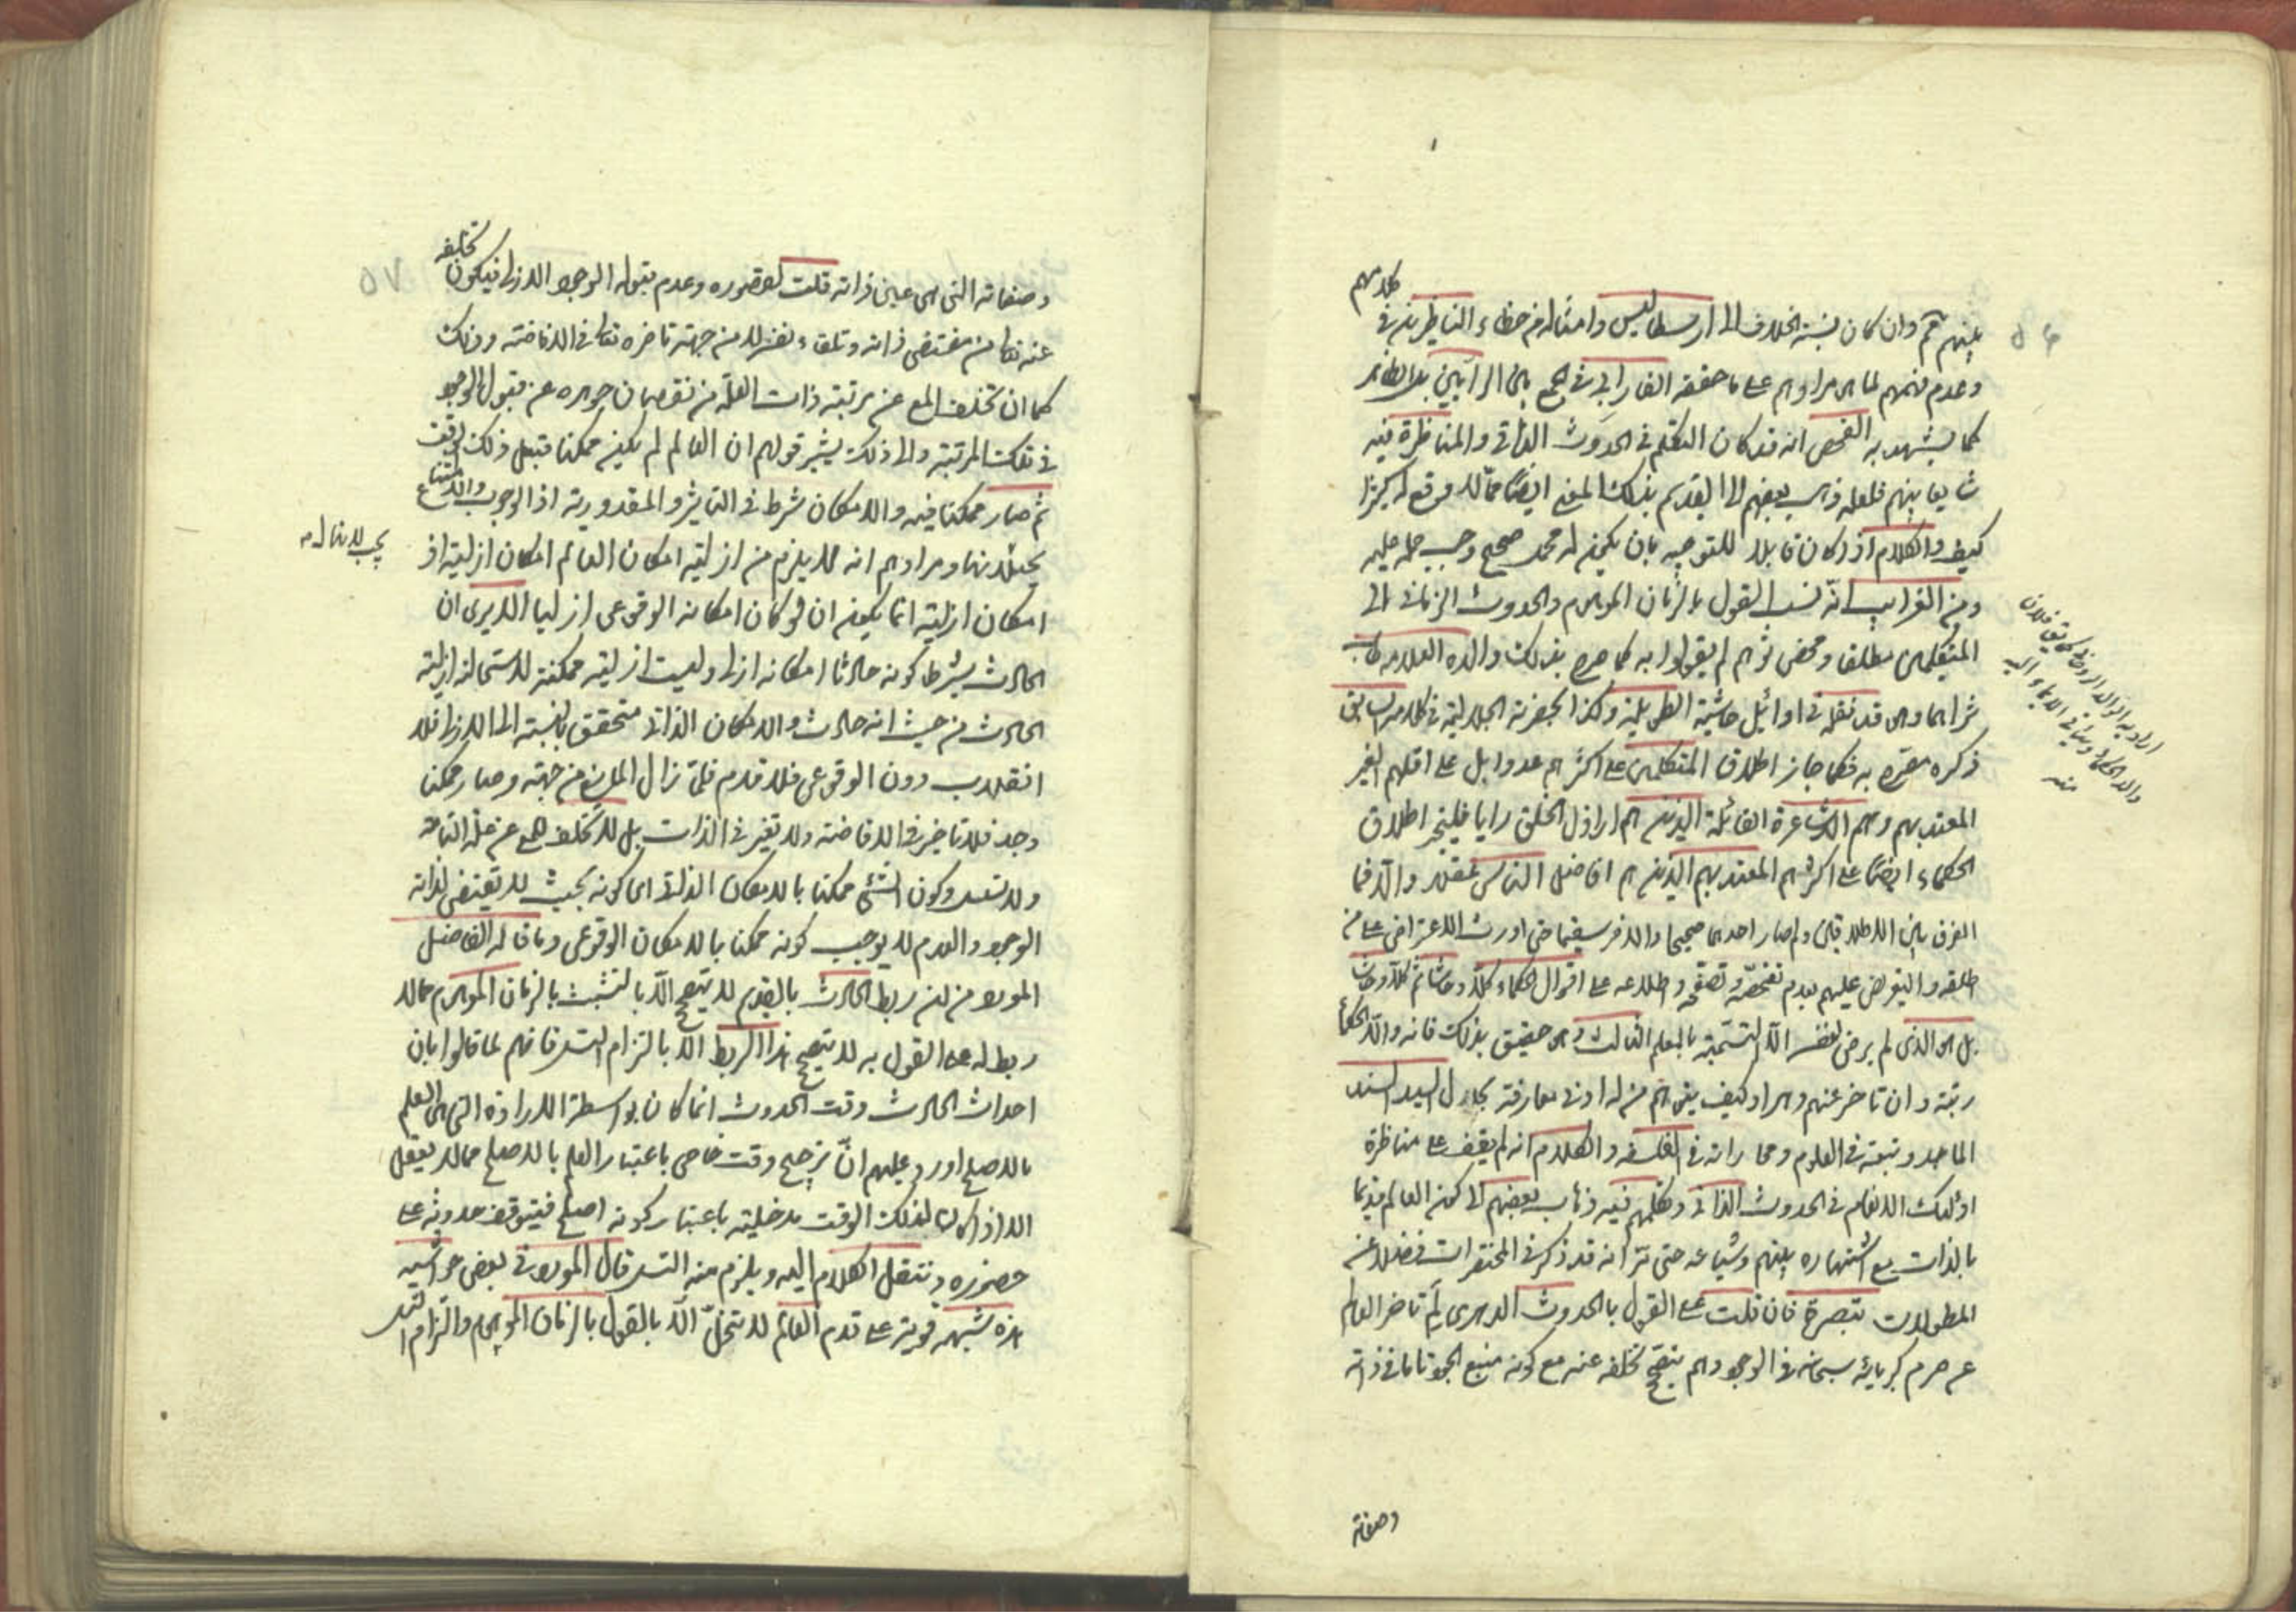 كلامهم
بينهم ثم وان كان نسبة الخلاف الى ارسطاليس وامثاله من خطاء الناظرين في
وعدم فهمهم لما هو مرادهم على ما حققه الفارابي في الجمع بين الرأيين
كما يشهد به الفحص انه قد كان التكلم في الحدوث الذاتي والمناظرة فيه
شايعا بينهم فلعله ذهب بعضهم الى القدم بذلك المعنى ايضا
كيف والكلام اذا كان قابلا للتوجيه بان يكون له محمل صحيح وجب حمله عليه
ومن الغرايب انه نسب القول بالزمان الموهوم والحدوث الزماني الى
المتكلمين مطلقا ومحض انهم لم يقولوا به كما صرح بذلك والده العلامة طاب
ثراهما وهو قد نقله في اوائل حاشيته
ذكره مصرح به فكما جاز اطلاق المتكلمين على اكثرهم عددا بل على اقلهم الغير
المعتد بهم وهم الاشاعرة القائلة الذين هم اراذل الخلق رايا فليجز اطلاق
الحكماء ايضا على اكثرهم المعتد بهم الذين هم افاضل الناس
الفرق بين الاطلاقين ولم صار احدهما صحيحا والاخر سقيما حتى اورث الاعتراض على من
اطلقه والتعرض عليهم بعدم تفحصه وتصفحه واطلاعه على اقوال الحكماء كلا وحاشا ثم كلا وحاشا
بل هو الذي لم يرض لنفسه الا لتسميته بالمعلم الثالث وهو حقيق بذلك فانه والد الحكماء
رتبة وان تاخر عنهم وهو اد كيف يتوهم من له ادنى معارفة بحال السيد السند
الماجد وتبعته في العلوم ومحاراته في الفلسفه والكلام انه لم يقف على مناظرة
اولئك الاعلام في الحدوث الذاتي وتكلمهم فيه وذهاب بعضهم الى كون العالم قديما
بالذات مع اشتهاره بينهم وشياعه حتى تراه قد ذكر في المختصرات فضلا عن
المطولات تبصرة فان قلت على القول بالحدوث الدهرى لم تاخر العالم
عن حرم كبريائه سبحانه في الوجود ولم يصح تخلفه عنه مع كونه منبع الجود تاما في ذاته
وصفاته
منه
تخلفه
وصفاته التي هي عين ذاته قلت لقصوره وعدم قبوله الوجود الازلي فيكون
عنه تعالى من مقتضى ذاته وتلقاء نفسه لا من جهة تاخره تعالى في الافاضة وذلك
كما ان تخلف المع عن مرتبة ذات العلة من نقصان جوهره عن قبول الوجود
في تلك المرتبة والى ذلك يشير قولهم ان العالم لم يكن ممكنا قبل ذلك الوقت
ثم صار ممكنا فيه والامكان شرط في التاثير والمقدورية اذ الوجوب والامتناع
يحيلانها ومرادهم انه لا يلزم من ازلية امكان العالم امكان ازليته اذ
امكان ازليته انما يكون ان لو كان امكانه الوقوعى ازليا الا يرى ان
الحادث بشرط كونه حادثا امكانه ازلى وليست ازليته ممكنة لاستحالة ازلية
الحادث من حيث انه حادث والامكان الذاتي متحقق بالنسبة الى الازل فلا
انقلاب دون الوقوعى فلا قدم فلما زال المانع من جهته وصار ممكنا
وجد فلا تاخير في الافاضة ولا تغير في الذات بل لا تخلف للمع عن علته التامة
ولا تسلسل وكون الشئ ممكنا بالامكان الذاتي اى كونه بحيث لا تقتضى ذاته
الوجود والعدم لا يوجب كونه ممكنا بالامكان الوقوعى وما قاله الفاضل
المورد من ان ربط الحادث بالقديم لا يصح الا بالتشبث بالزمان الموهوم مما لا
ربط له على القول به لا يصح هذا الربط الا بالتزام التسلسل فانهم لما قالوا بان
احداث الحادث وقت الحدوث انما كان بواسطة الارادة التي هي العلم
بالاصلح اورد عليهم ان ترجيح وقت خاص باعتبار العلم بالاصلح مما لا يعقل
الا اذا كان لذلك الوقت مدخلية باعتبار كونه اصلح فيتوقف حدوثه على
حضوره وننقل الكلام اليه ويلزم منه التسلسل قال المورد في بعض حواشيه
هذه شبهة قوية على قدم العالم لا تنحل الا بالقول بالزمان الموهوم والتزام التسلسل